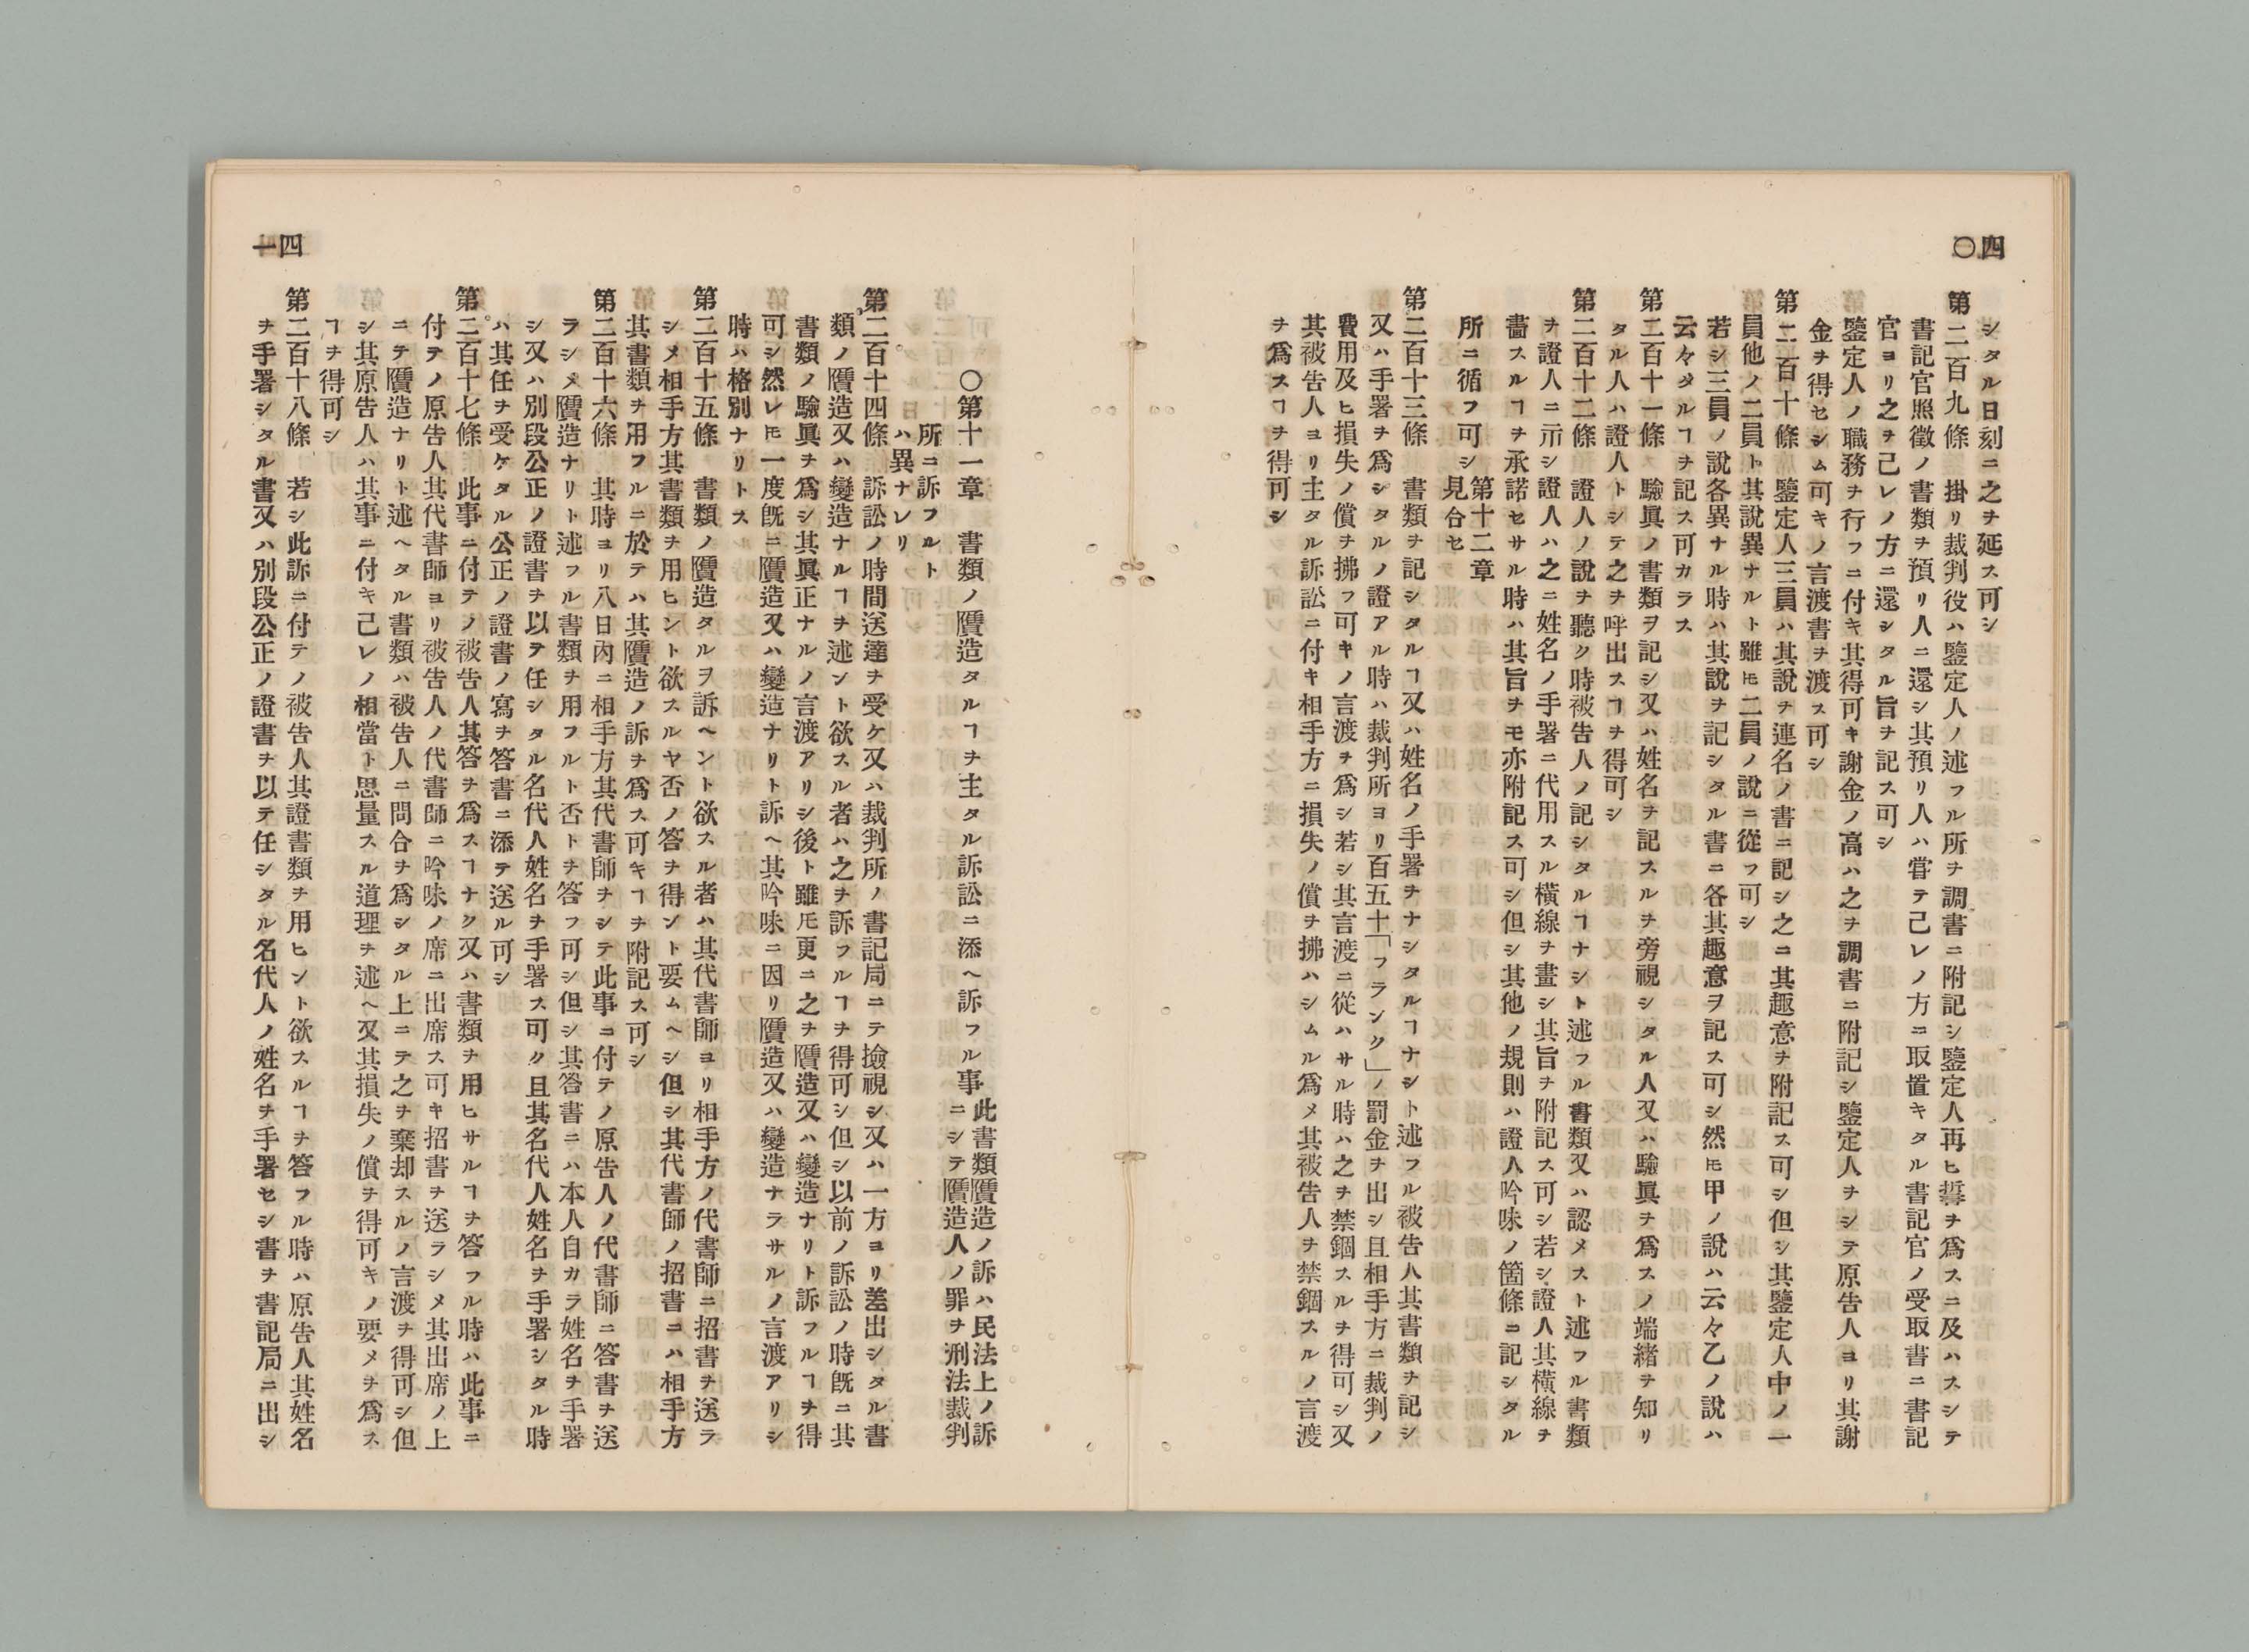 四〇
シタル日刻ニ之ヲ延ス可シ
第二百九條　掛リ裁判役ハ鑒定人ノ述フル所ヲ調書ニ附記シ鑒定人再ヒ誓ヲ爲スニ及ハスシテ
書記官照徵ノ書類ヲ預リ人ニ還シ其預リ人ハ甞テ己レノ方ニ取置キタル書記官ノ受取書ニ書記
官ヨリ之ヲ己レノ方ニ還シタル旨ヲ記ス可シ
鑒定人ノ職務ヲ行フニ付キ其得可キ謝金ノ高ハ之ヲ調書ニ附記シ鑒定人ヲシテ原告人ヨリ其謝
金ヲ得セシム可キノ言渡書ヲ渡ス可シ
第二百十條　鑒定人三員ハ其說ヲ連名ノ書ニ記シ之ニ其趣意ヲ附記ス可シ但シ其鑒定人中ノ一
員他ノ二員ト其說異ナルト雖𪜈二員ノ說ニ從フ可シ
若シ三員ノ說各異ナル時ハ其說ヲ記シタル書ニ各其趣意ヲ記ス可シ然𪜈甲ノ說ハ云々乙ノ說ハ
云々タルヿヲ記ス可カラス
第二百十一條　驗眞ノ書類ヲ記シ又ハ姓名ヲ記スルヲ旁視シタル人又ハ驗眞ヲ爲スノ端緒ヲ知リ
タル人ハ證人トシテ之ヲ呼出スヿヲ得可シ
第二百十二條　證人ノ說ヲ聽ク時被告人ノ記シタルヿナシト述フル書類又ハ認メスト述フル書類
ヲ證人ニ示シ證人ハ之ニ姓名ノ手署ニ代用スル横線ヲ畫シ其旨ヲ附記ス可シ若シ證人其横線ヲ
畵スルヿヲ承諾セサル時ハ其旨ヲモ亦附記ス可シ但シ其他ノ規則ハ證人吟味ノ箇條ニ記シタル
所ニ循フ可シ第十二章見合セ
第二百十三條　書類ヲ記シタルヿ又ハ姓名ノ手署ヲナシタルヿナシト述フル被告人其書類ヲ記シ
又ハ手署ヲ爲シタルノ證アル時ハ裁判所ヨリ百五十「フランク」ノ罰金ヲ出シ且相手方ニ裁判ノ
費用及ヒ損失ノ償ヲ拂フ可キノ言渡ヲ爲シ若シ其言渡ニ從ハサル時ハ之ヲ禁錮スルヲ得可シ又
其被告人ヨリ主タル訴訟ニ付キ相手方ニ損失ノ償ヲ拂ハシムル爲メ其被告人ヲ禁錮スルノ言渡
ヲ爲スヿヲ得可シ
四一
〇第十一章　書類ノ贋造タルヿヲ主タル訴訟ニ添ヘ訴フル事此書類贋造ノ訴ハ民法上ノ訴ニシテ贋造人ノ罪ヲ刑法裁判
所ニ訴フルトハ異ナレリ
第二百十四條　訴訟ノ時間送達ヲ受ケ又ハ裁判所ノ書記局ニテ撿視シ又ハ一方ヨリ差出シタル書
類ノ贋造又ハ變造ナルヿヲ述ント欲スル者ハ之ヲ訴フルヿヲ得可シ但シ以前ノ訴訟ノ時既ニ其
書類ノ驗眞ヲ爲シ其眞正ナルノ言渡アリシ後ト雖𪜈更ニ之ヲ贋造又ハ變造ナリト訴フルヿヲ得
可シ然レ𪜈一度既ニ贋造又ハ變造ナリト訴ヘ其吟味ニ因リ贋造又ハ變造ナラサルノ言渡アリシ
時ハ格別ナリトス
第二百十五條　書類ノ贋造タルヲ訴ヘント欲スル者ハ其代書師ヨリ相手方ノ代書師ニ招書ヲ送ラ
シメ相手方其書類ヲ用ヒント欲スルヤ否ノ答ヲ得ント要ムヘシ但シ其代書師ノ招書ニハ相手方
其書類ヲ用フルニ於テハ其贋造ノ訴ヲ爲ス可キヿヲ附記ス可シ
第二百十六條　其時ヨリ八日內ニ相手方其代書師ヲシテ此事ニ付テノ原告人ノ代書師ニ答書ヲ送
ラシメ贋造ナリト述フル書類ヲ用フルト否トヲ答フ可シ但シ其答書ニハ本人自カラ姓名ヲ手署
シ又ハ別段公正ノ證書ヲ以テ任シタル名代人姓名ヲ手署ス可ク且其名代人姓名ヲ手署シタル時
ハ其任ヲ受ケタル公正ノ證書ノ寫ヲ答書ニ添テ送ル可シ
第二百十七條　此事ニ付テノ被告人其答ヲ爲スヿナク又ハ書類ヲ用ヒサルヿヲ答フル時ハ此事ニ
付テノ原告人其代書師ヨリ被告人ノ代書師ニ吟味ノ席ニ出席ス可キ招書ヲ送ラシメ其出席ノ上
ニテ贋造ナリト述ヘタル書類ハ被告人ニ問合ヲ爲シタル上ニテ之ヲ棄却スルノ言渡ヲ得可シ但
シ其原告人ハ其事ニ付キ己レノ相當ト思量スル道理ヲ述ヘ又其損失ノ償ヲ得可キノ要メヲ爲ス
ヿヲ得可シ
第二百十八條　若シ此訴ニ付テノ被告人其證書類ヲ用ヒント欲スルヿヲ答フル時ハ原告人其姓名
ヲ手署シタル書又ハ別段公正ノ證書ヲ以テ任シタル名代人ノ姓名ヲ手署セシ書ヲ書記局ニ出シ